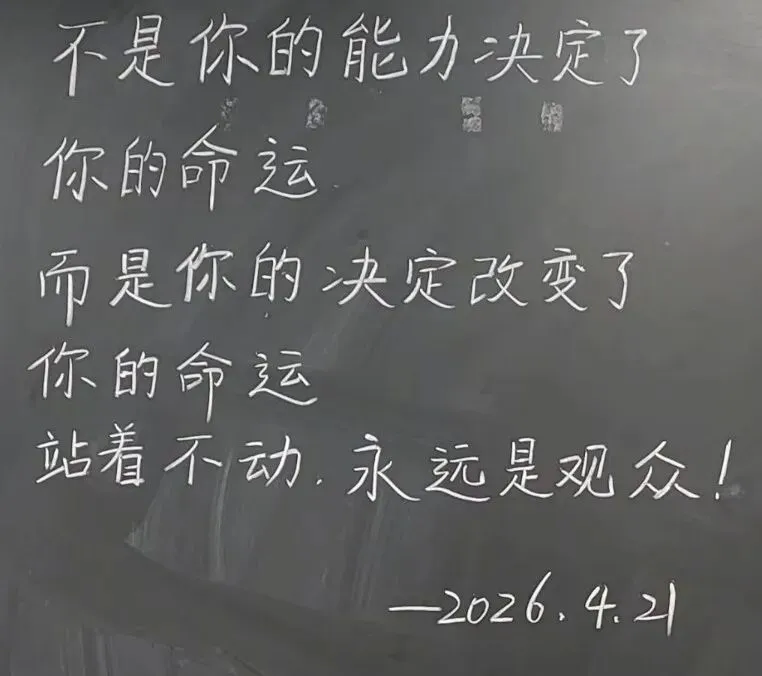 不是你的能力决定了
你的命运
而是你的决定改变了
你的命运
站着不动.永远是观众!
—2026.4.21